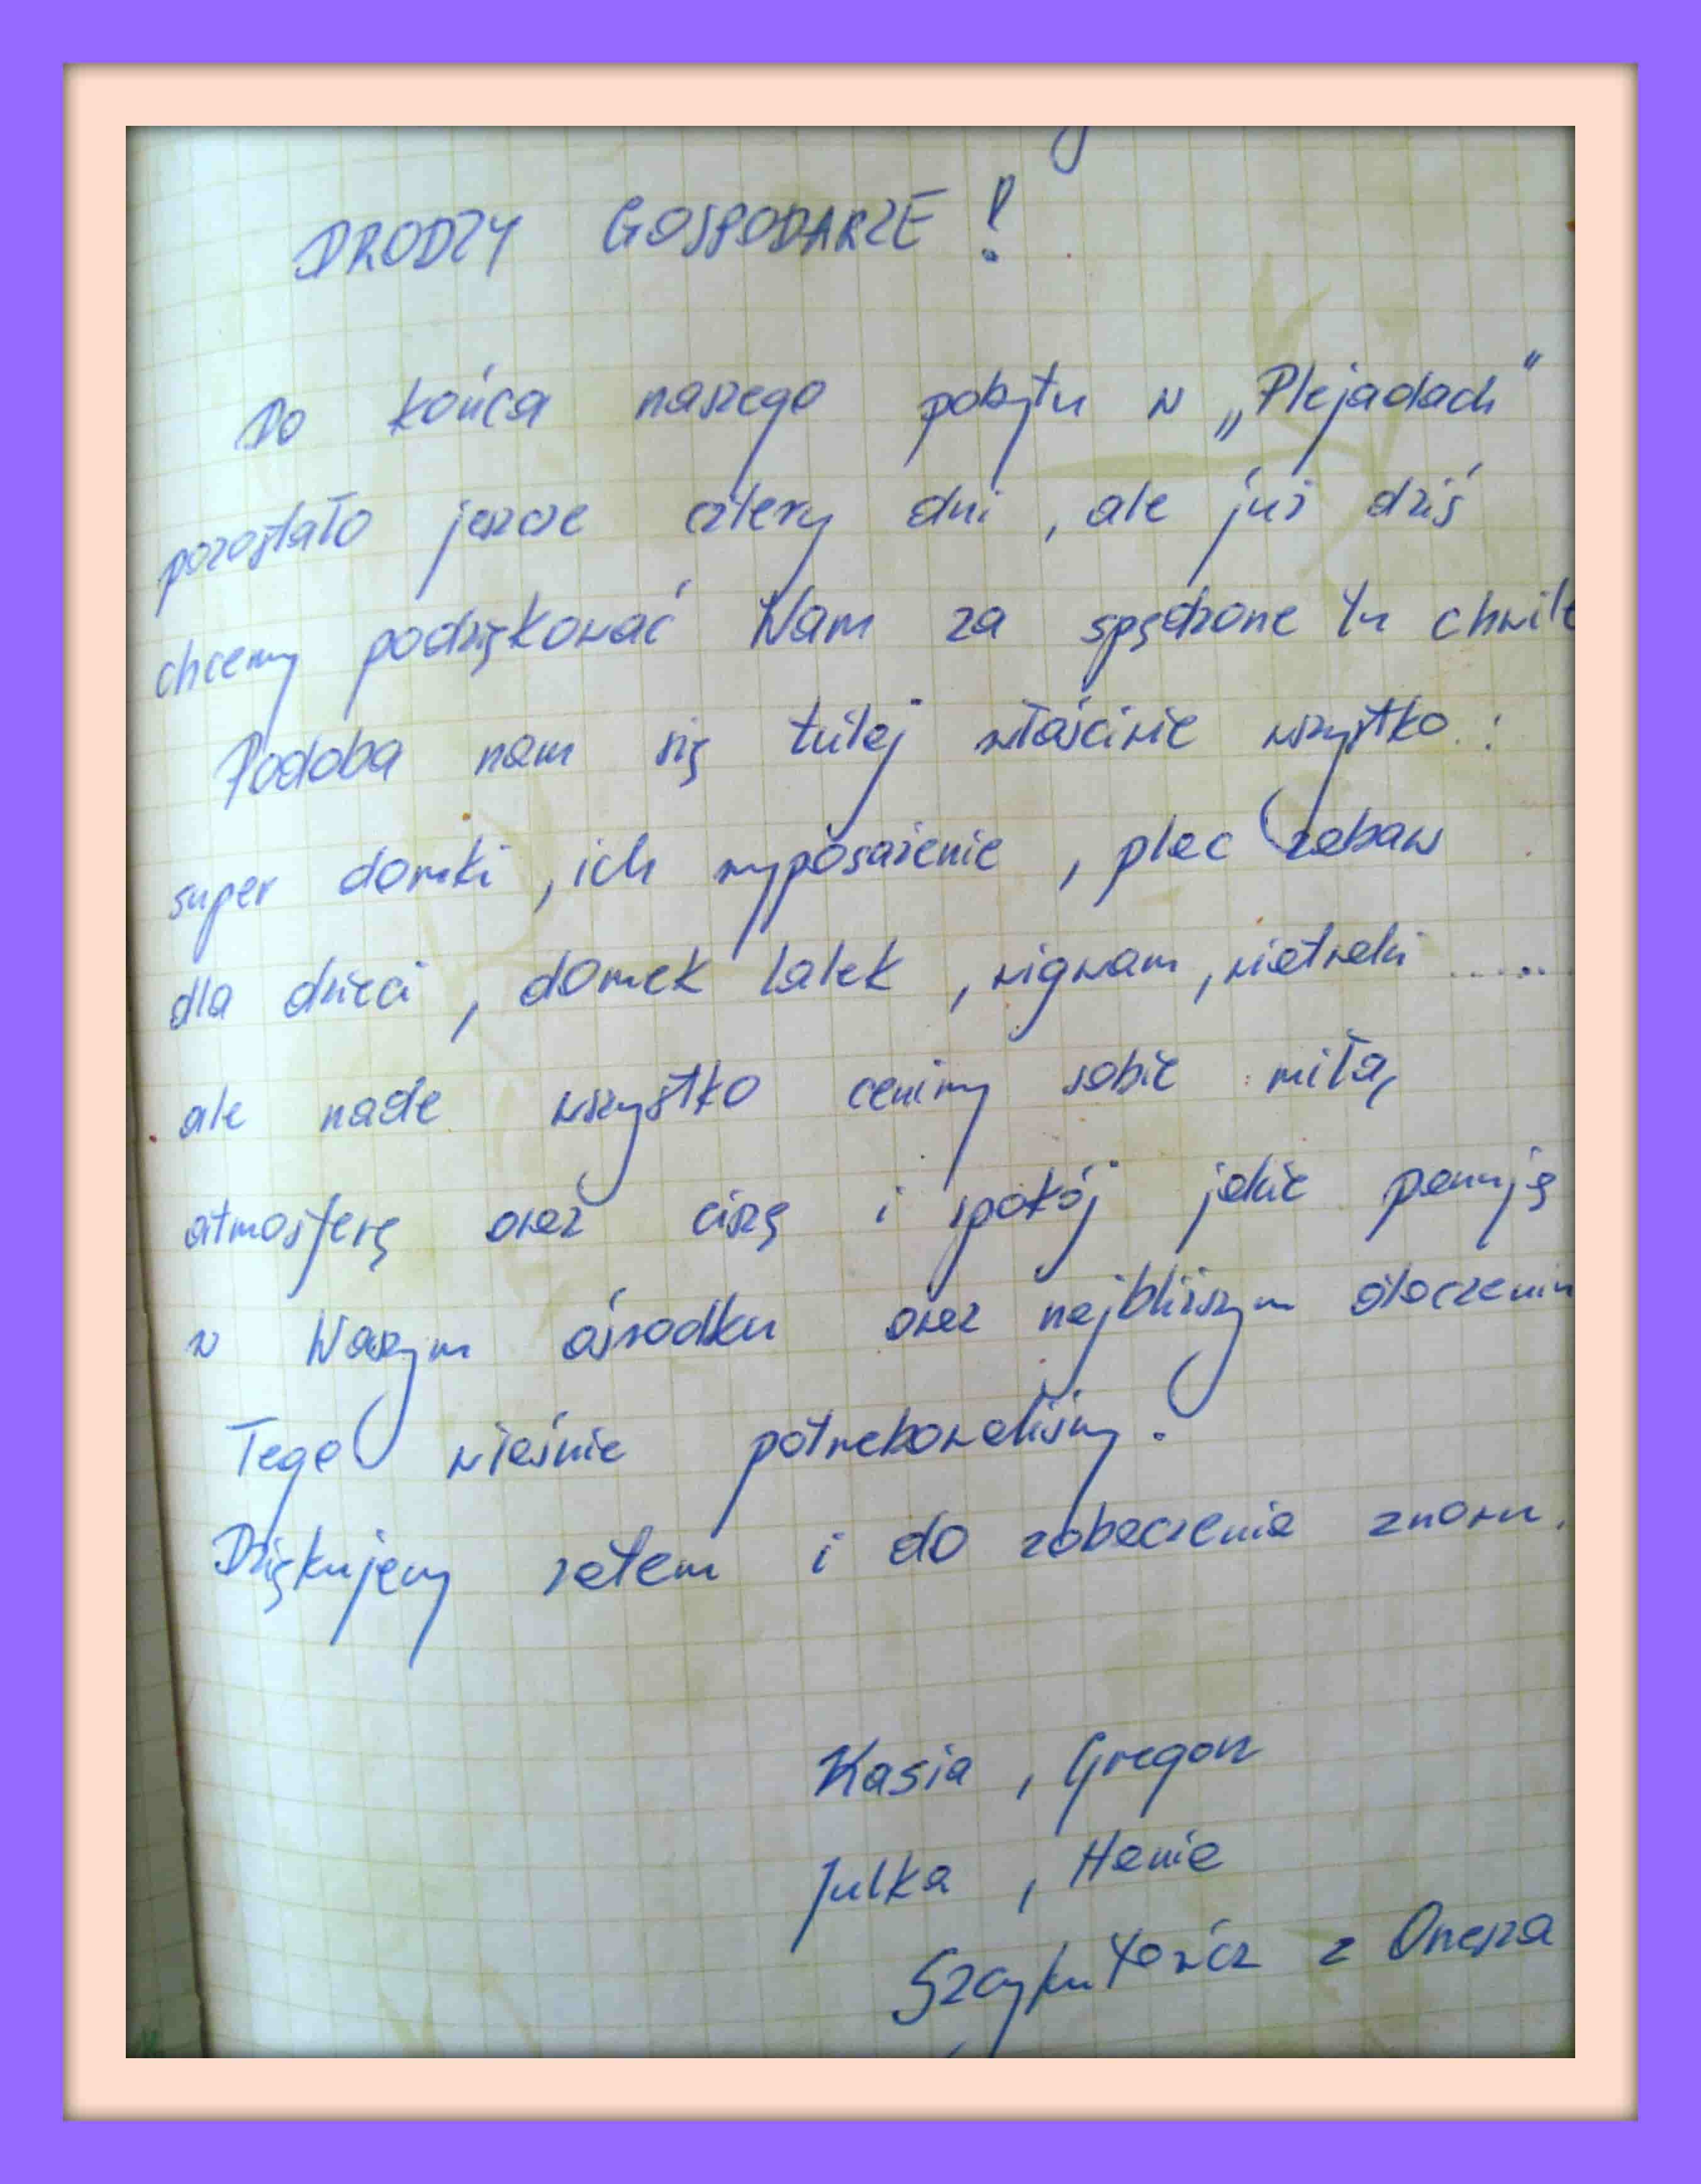 DRODZY GOSPODARZE!
Do końca naszego pobytu w „Plejadach”
pozostało jeszcze cztery dni, ale już dziś
chcemy podziękować Wam za spędzone tu chwile
Podoba nam się tutaj właściwie wszystko:
super domki, ich wyposażenie, plac zabaw
dla dzieci, domek lalek, wigwam, wiatraki .....
ale nade wszystko cenimy sobie miłą
atmosferę oraz ciszę i spokój jakie panują
w Waszym ośrodku oraz najbliższym otoczeniu
Tego właśnie potrzebowaliśmy.
Dziękujemy zatem i do zobaczenia znowu.
Kasia, Grzegorz
Julka, Hania
z Orzesza